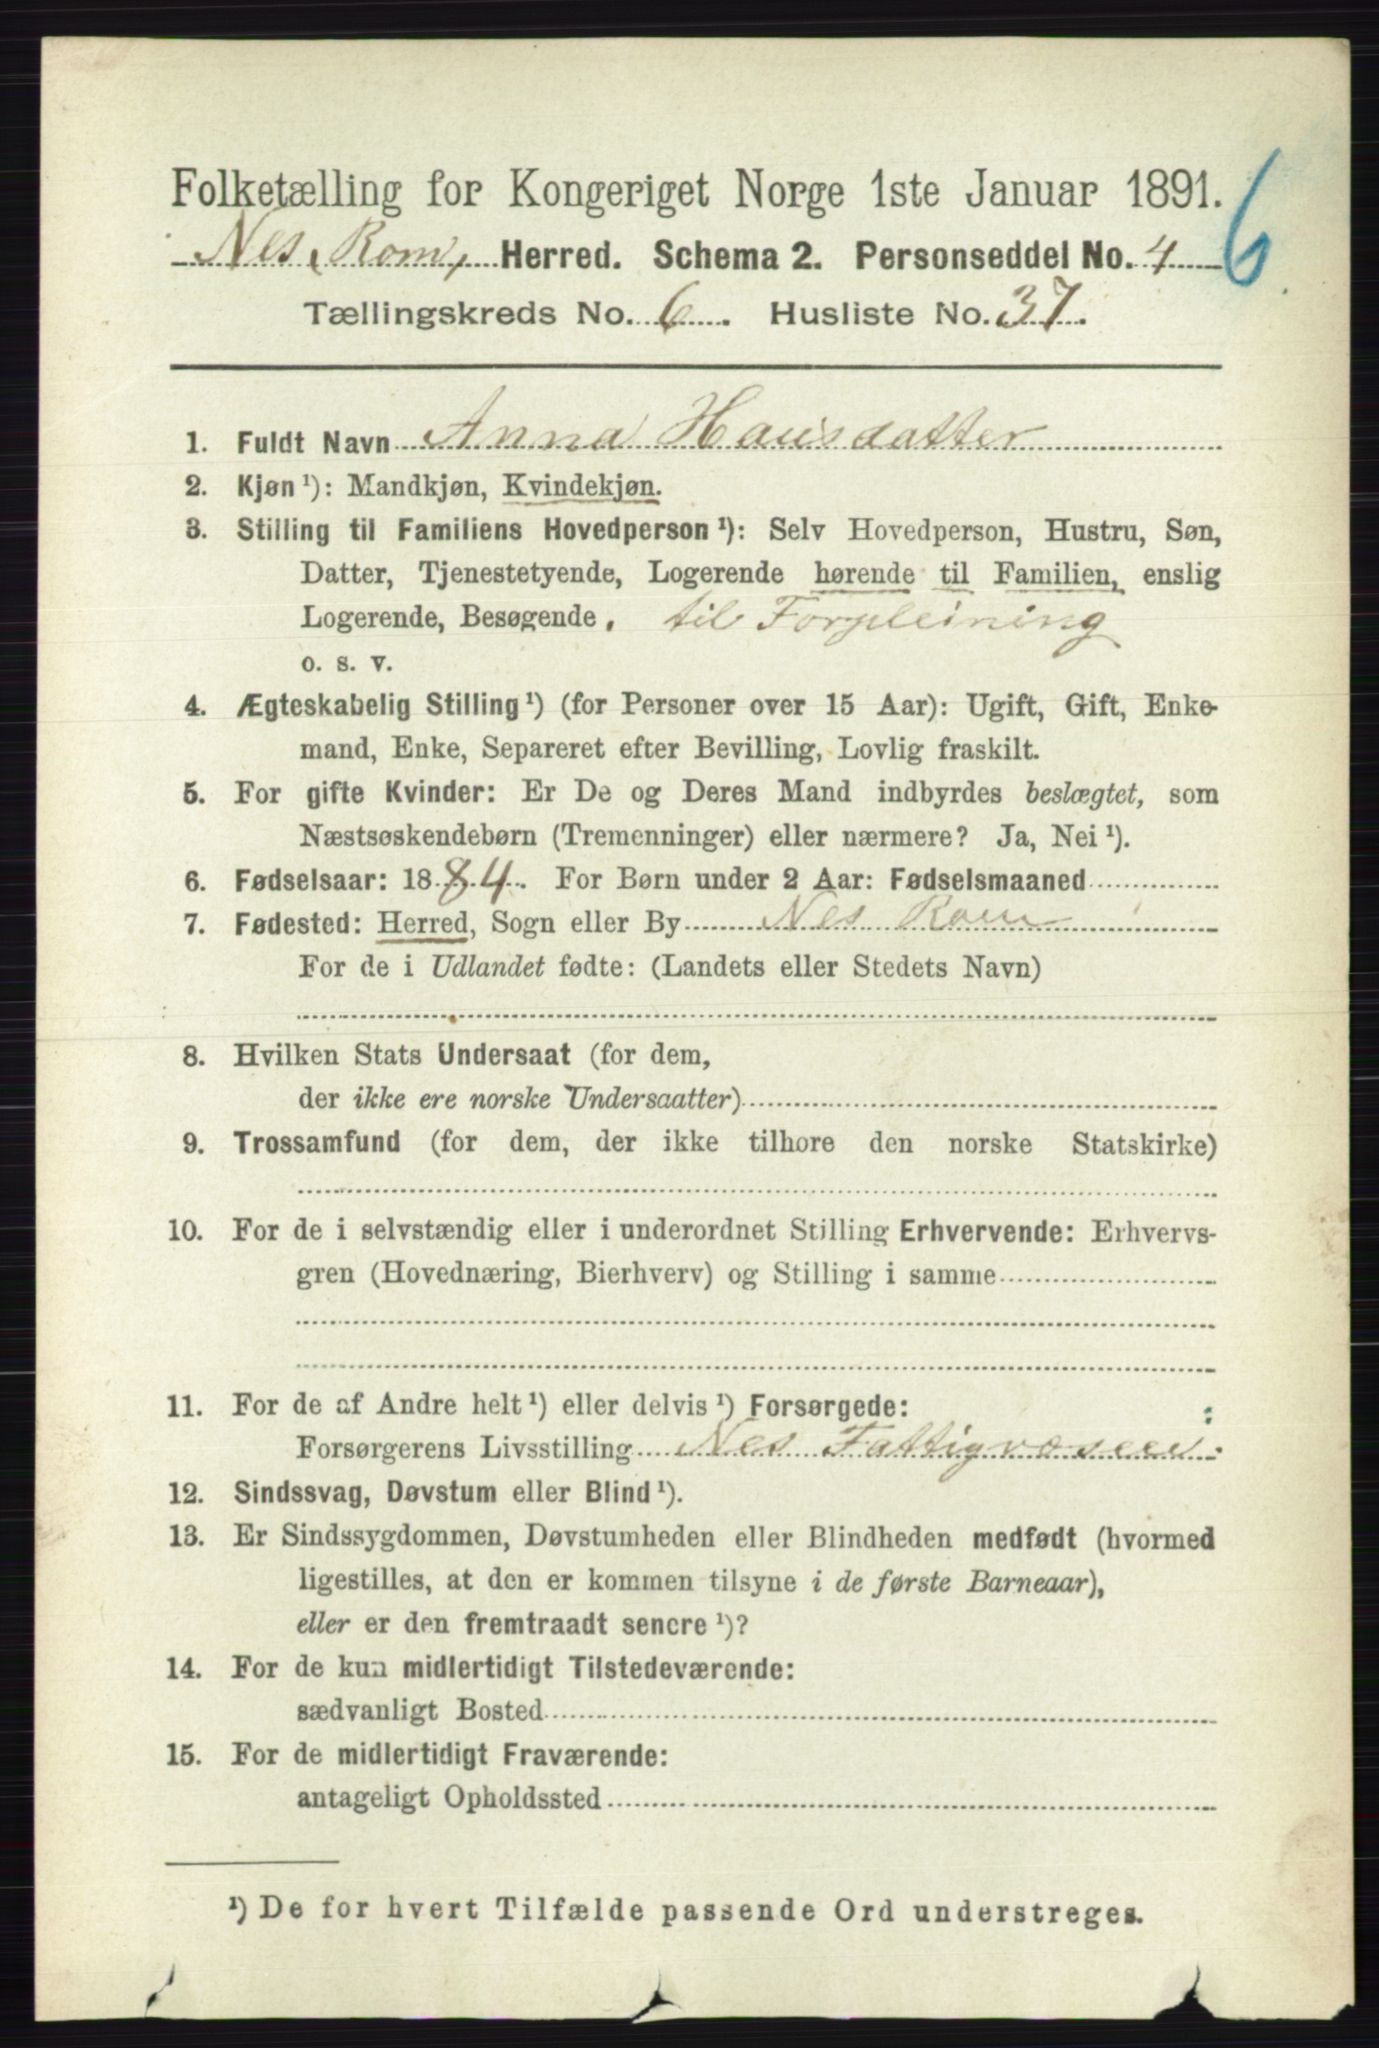 Folketælling for Kongeriget Norge 1ste Januar 1891.
6
Nes, Rom, Herred. Schema 2. Personseddel No. 4
Tællingskreds No. 6. Husliste No. 37.
1. Fuldt Navn Anna Hansdatter
2. Kjøn ¹): Mandkjøn, Kvindekjøn.
3. Stilling til Familiens Hovedperson ¹): Selv Hovedperson, Hustru, Søn,
Datter, Tjenestetyende, Logerende hørende til Familien, enslig
Logerende, Besøgende. til Forpleining
o. s. v.
4. Ægteskabelig Stilling ¹) (for Personer over 15 Aar): Ugift, Gift, Enke-
mand, Enke, Separeret efter Bevilling, Lovlig fraskilt.
5. For gifte Kvinder: Er De og Deres Mand indbyrdes beslægtet, som
Næstsøskendebørn (Tremenninger) eller nærmere? Ja, Nei ¹).
6. Fødselsaar: 1884. For Børn under 2 Aar: Fødselsmaaned
7. Fødested: Herred, Sogn eller By Nes Rom
For de i Udlandet fødte: (Landets eller Stedets Navn)
8. Hvilken Stats Undersaat (for dem,
der ikke ere norske Undersaatter)
9. Trossamfund (for dem, der ikke tilhøre den norske Statskirke)
10. For de i selvstændig eller i underordnet Stilling Erhvervende: Erhvervs-
gren (Hovednæring, Bierhverv) og Stilling i samme
11. For de af Andre helt ¹) eller delvis ¹) Forsørgede:
Forsørgerens Livsstilling Nes Fattigvæsen
12. Sindssvag, Døvstum eller Blind ¹).
13. Er Sindssygdommen, Døvstumheden eller Blindheden medfødt (hvormed
ligestilles, at den er kommen tilsyne i de første Barneaar),
eller er den fremtraadt senere ¹)?
14. For de kun midlertidigt Tilstedeværende:
sædvanligt Bosted
15. For de midlertidigt Fraværende:
antageligt Opholdssted
¹) De for hvert Tilfælde passende Ord understreges.